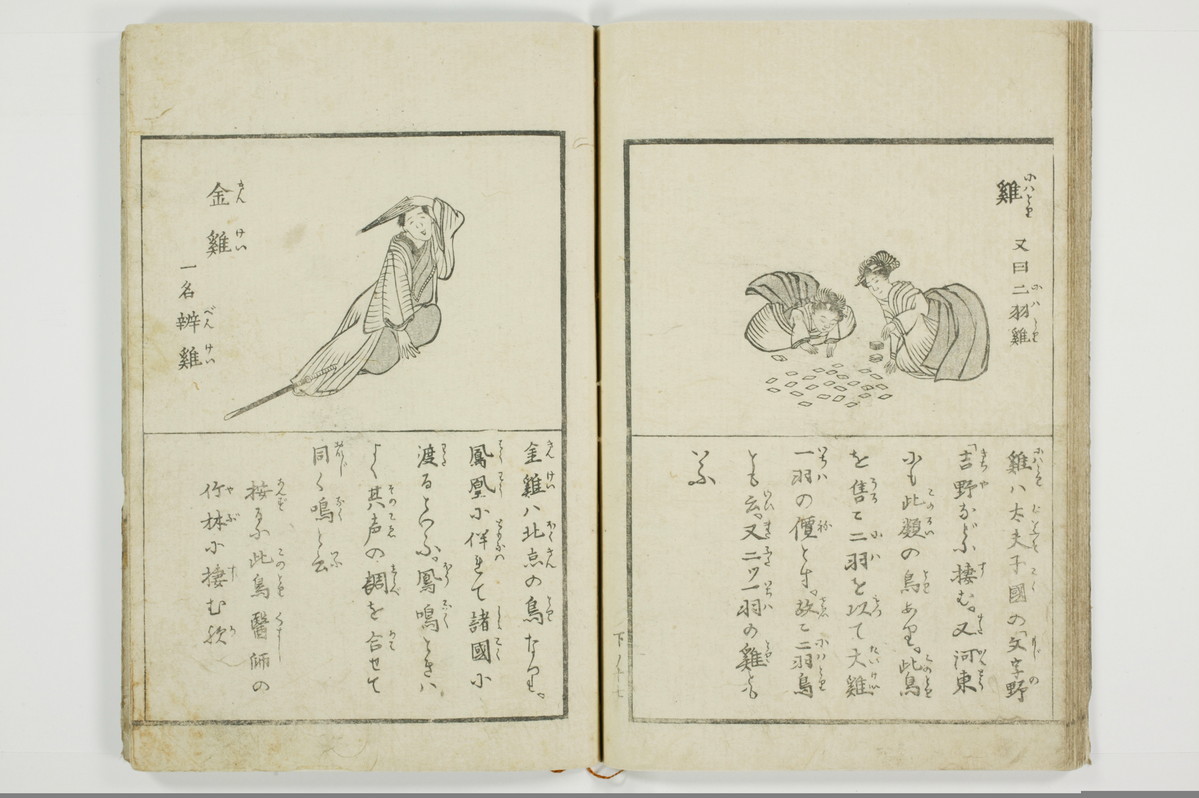 雞 又曰二羽雞
雞ハ太夫子國の文字野
吉野などに棲む。又河東
にも此類の鳥あり。此鳥
を售て二羽を以て大雞
一羽の價とす。故に二羽鳥
とも云。又二ツ一羽の雞とも
いふ
下ノ七
金雞
一名辨雞
金雞ハ北の鳥なり。
鳳凰に伴れて諸國に
渡るといふ。鳳鳴ときハ
よく其声の調を合せて
同く鳴と云
按るに此鳥醫師の
竹林に棲む歟